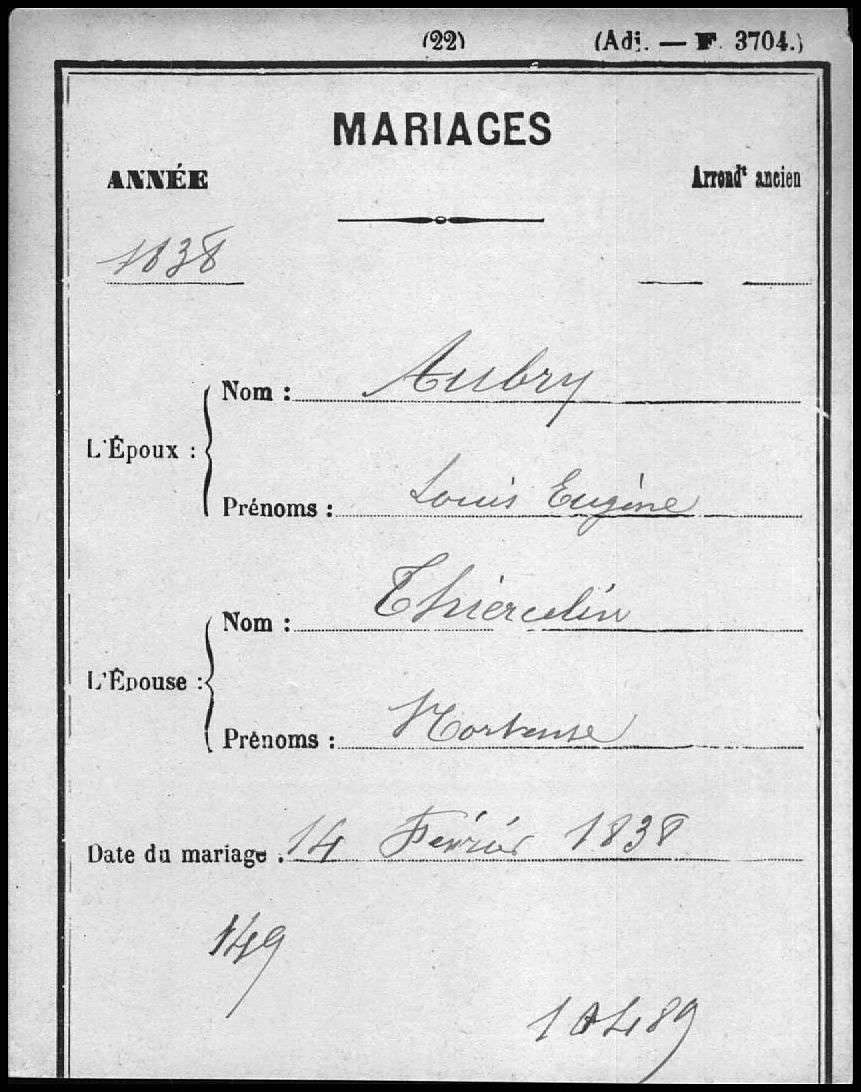 (22) (Adj. — F. 3704.)
MARIAGES
ANNÉE Arrondt ancien
1838
L'Époux :
Nom : Aubry
Prénoms : Louis Eugène
L'Épouse :
Nom : Thiercelin
Prénoms : Hortense
Date du mariage : 14 Février 1838
149
10489